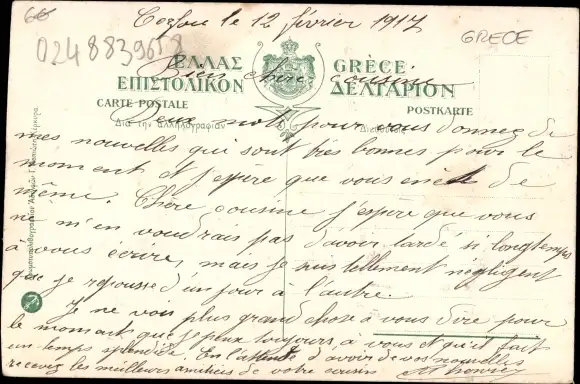 66
Corfou le 12 février 1917
GRECE
0248839658
ΕΛΛΑΣ
GRÈCE
Bien chère cousine
ΕΠΙΣΤΟΛΙΚΟΝ ΔΕΛΤΑΡΙΟΝ
CARTE POSTALE
POSTKARTE
Διά την αλληλογραφίαν
Deux mots pour vous donner de
mes nouvelles qui sont très bonnes pour le
moment et j'espère que vous de
même. Chère cousine j'espère que vous
ne m'en voudrais pas d'avoir tardé si longtemps
à vous écrire, mais je suis tellement négligent
que je repousse d'un jour à l'autre.
Je ne vois plus grand chose à vous dire pour
le moment que je peux toujours, à vous et qu'il fait
un temps splendide. En l'attente d'avoir de vos nouvelles
recevez les meilleurs amitiés de votre cousin